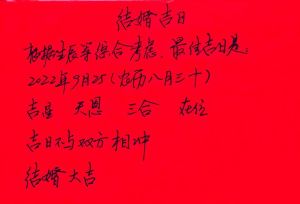 结婚吉日
根据生辰等综合考虑，最佳吉日是
2022年9月25（农历八月三十）
吉星 天恩 三合 在位
吉日不与双方相冲
结婚大吉